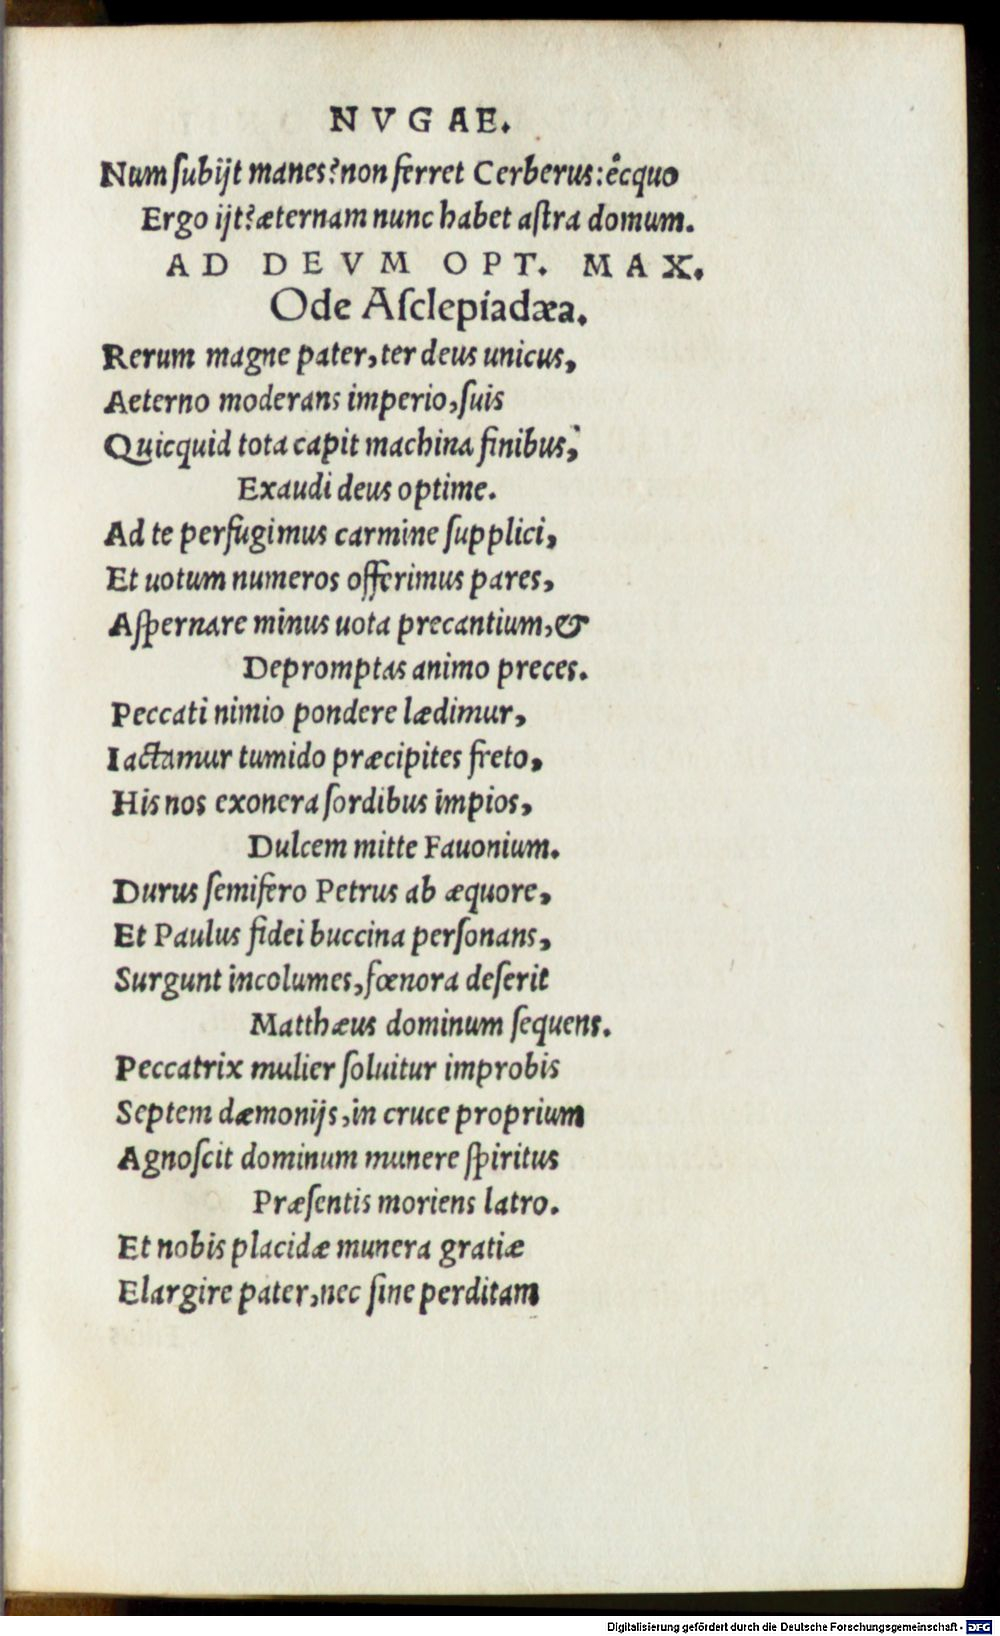 NVGAE.
Num ſubijt manes? non ferret Cerberus: ecquo
Ergo ijt? æternam nunc habet aſtra domum.
AD DEVM OPT. MAX.
Ode Aſclepiadæa.
Rerum magne pater, ter deus unicus,
Aeterno moderans imperio, ſuis
Quicquid tota capit machina finibus,
Exaudi deus optime.
Ad te perfugimus carmine ſupplici,
Et uotum numeros offerimus pares,
Aſpernare minus uota precantium, &
Depromptas animo preces.
Peccati nimio pondere lædimur,
Iactamur tumido præcipites freto,
His nos exonera ſordibus impios,
Dulcem mitte Fauonium.
Durus ſemifero Petrus ab æquore,
Et Paulus fidei buccina perſonans,
Surgunt incolumes, fœnora deſerit
Matthæus dominum ſequens.
Peccatrix mulier ſoluitur improbis
Septem dæmonijs, in cruce proprium
Agnoſcit dominum munere ſpiritus
Præſentis moriens latro.
Et nobis placidæ munera gratiæ
Elargire pater, nec ſine perditam
Digitalisierung gefördert durch die Deutsche Forschungsgemeinschaft - DFG